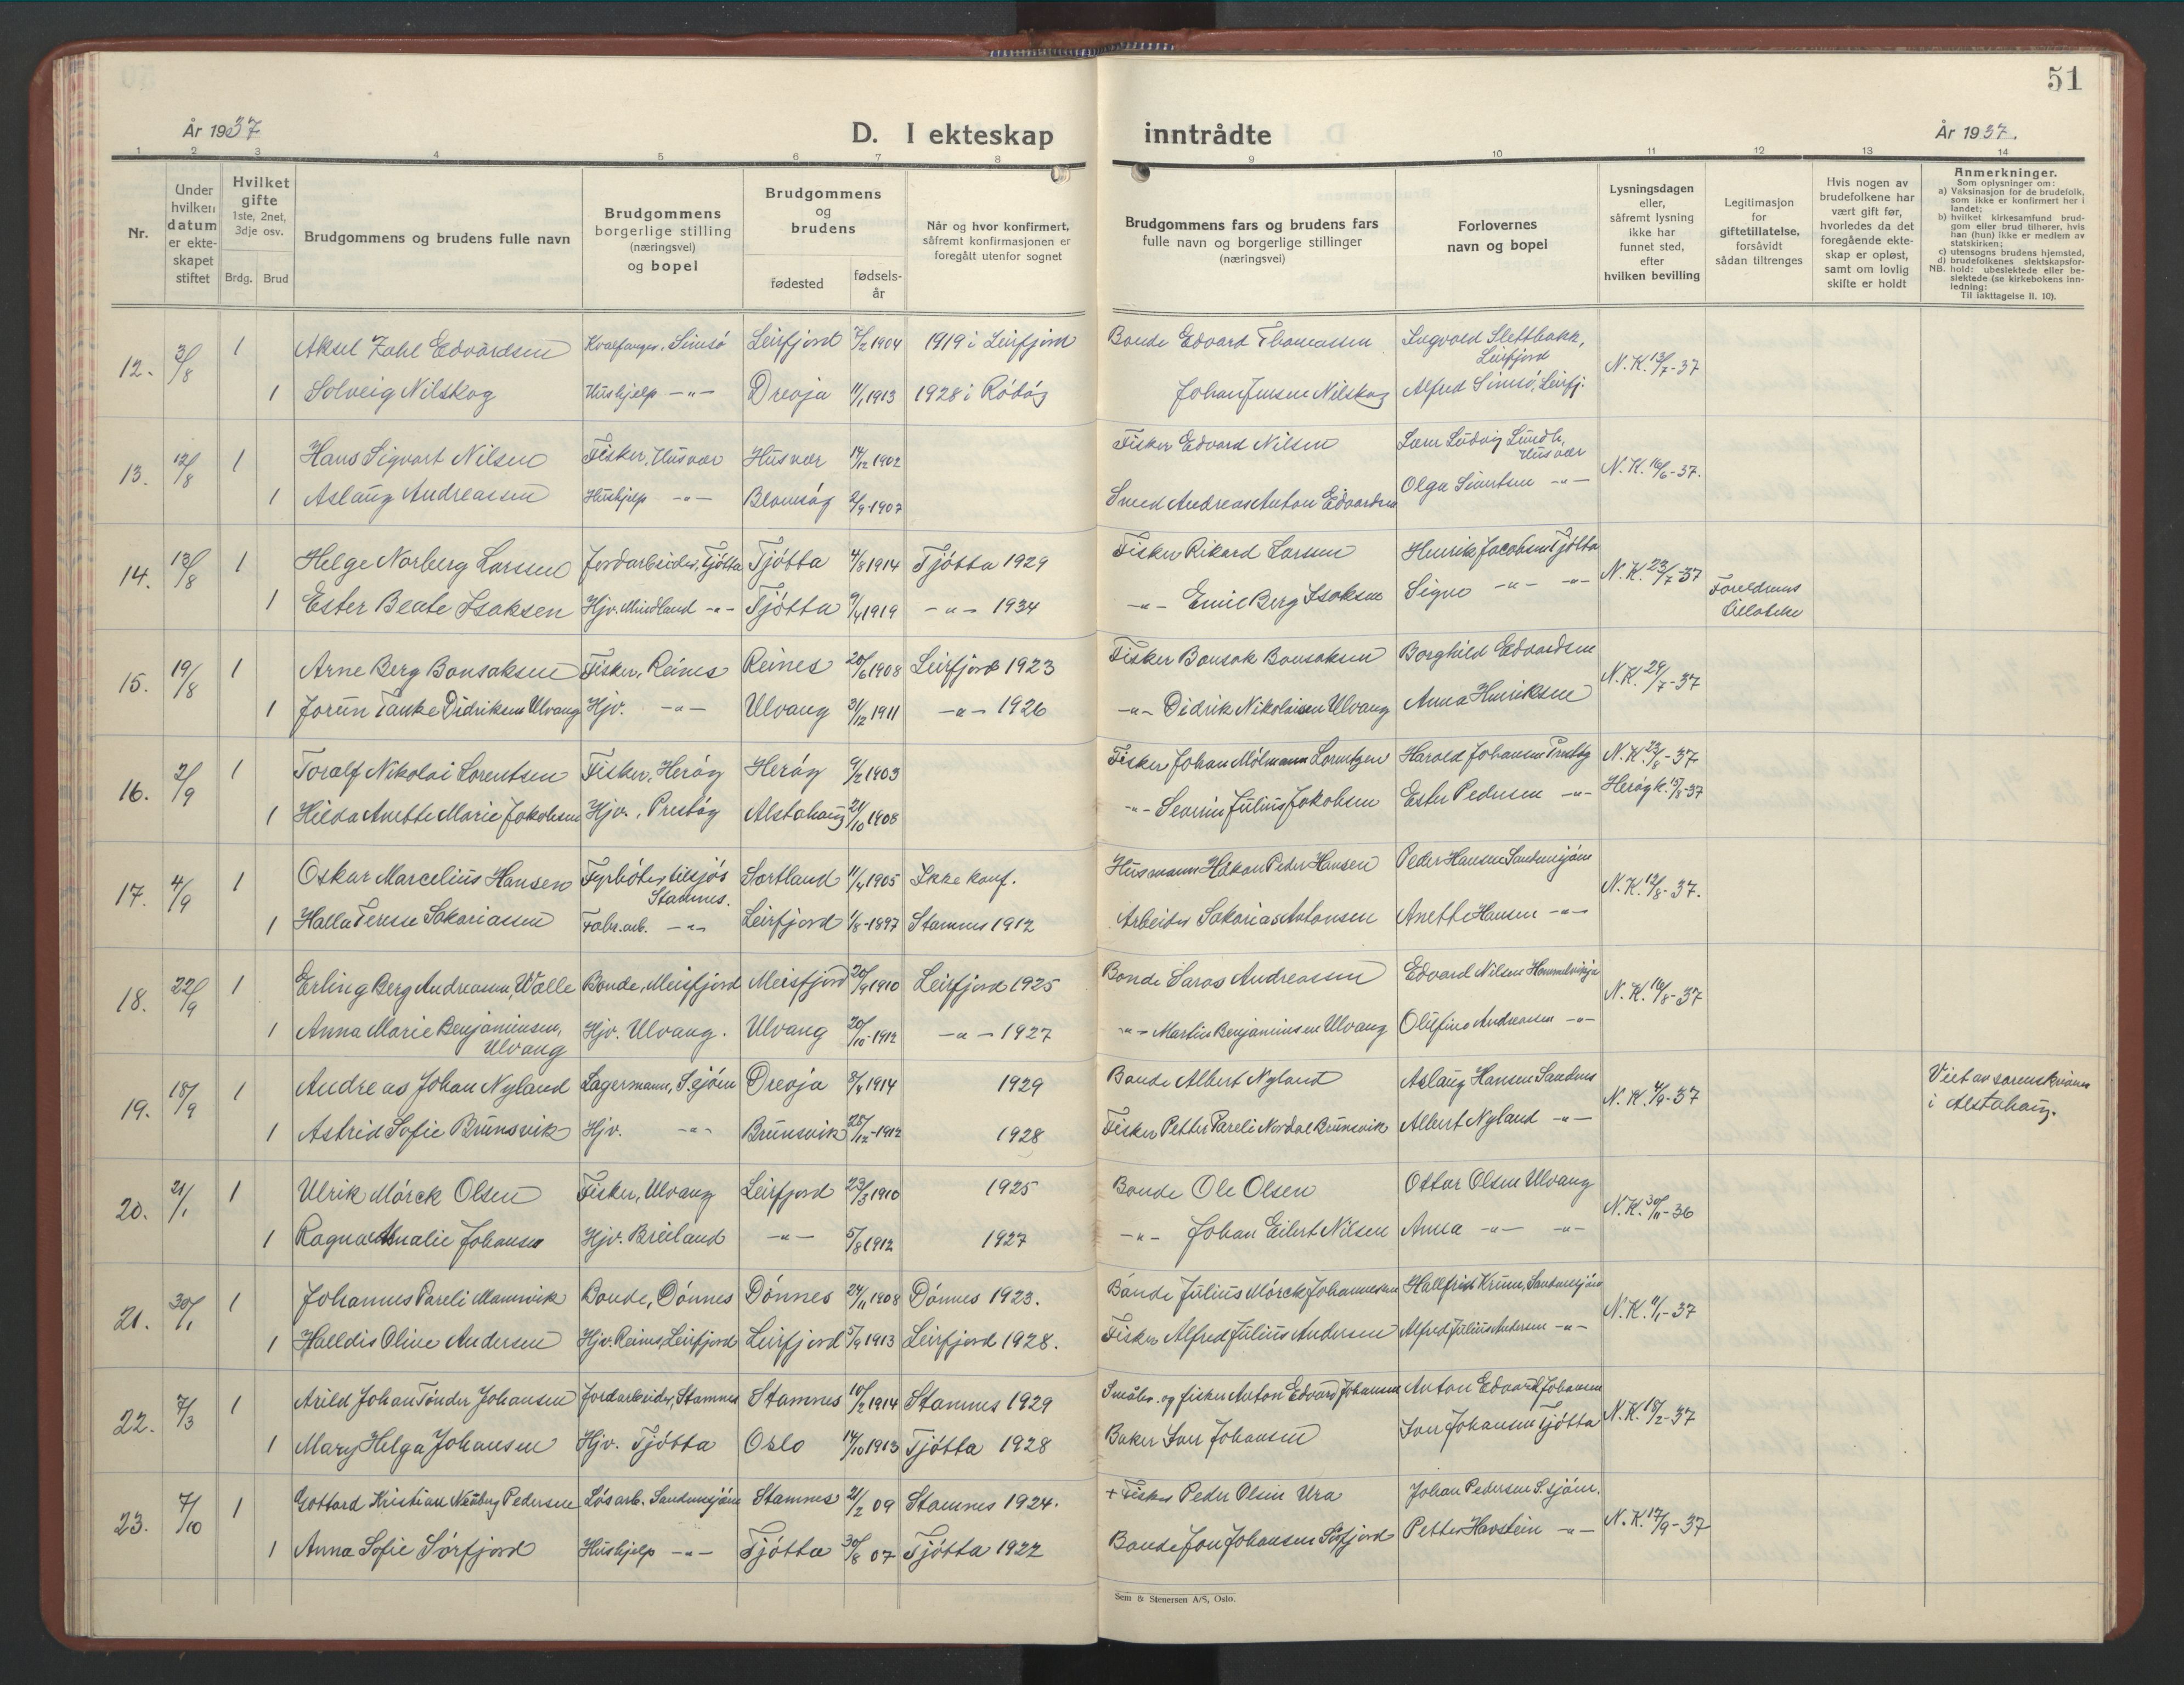 51
År 1937
D. I ekteskap inntrådte
År 1937.
1 2 3 4 5 6 7 8 9 10 11 12 13 14
Nr.
Under hvilken datum er ekteskapet stiftet
Hvilket gifte 1ste, 2net, 3dje osv.
Brdg. Brud
Brudgommens og brudens fulle navn
Brudgommens borgerlige stilling (næringsvei) og bopel
Brudgommens og brudens
fødested
fødselsår
Når og hvor konfirmert, såfremt konfirmasjonen er foregått utenfor sognet
Brudgommens fars og brudens fars fulle navn og borgerlige stillinger (næringsvei)
Forlovernes navn og bopel
Lysningsdagen eller, såfremt lysning ikke har funnet sted, efter hvilken bevilling
Legitimasjon for giftetillatelse, forsåvidt sådan tiltrenges
Hvis nogen av brudefolkene har vært gift før, hvorledes da det foregående ekteskap er opløst, samt om lovlig skifte er holdt
Anmerkninger.
Som oplysninger om:
a) Vaksinasjon for de brudefolk, som ikke er konfirmert her i landet;
b) hvilket kirkesamfund brudgom eller brud tilhører, hvis han (hun) ikke er medlem av statskirken;
c) utensogns brudens hjemsted,
d) brudefolkenes slektskapsforhold: ubeslektede eller beslektede (se kirkebokens innledning:
NB.
Til iakttagelse II. 10).
12. 3/8 1 Aksel Zahl Edvardsen Kvalfanger, Simsø Leirfjord 7/2 1904 1919 i Leirfjord Bonde Edvard Thomassen Sigvald Slettbakk, Leirfjord N.K. 13/7-37
1 Solveig Nilskog Hushjelp -"- Drevja 11/1 1913 1928 i Rödöy Johan Jensen Nilskog Alfred Simsö, Leirfj.
13. 12/8 1 Hans Sigvart Nilsen Fisker, Husvær Husvær 14/12 1902 Fisker Edvard Nilsen Lars Ludvig Lundh, Husvær N.K. 16/6-37.
1 Aslaug Andreassen Hushjelp -"- Blomsöy 2/9-1907 Smed Andreas Anton Edvardsen Olga Sivertsen -"-
14. 13/8 1 Helge Norberg Larssen Jordarbeider, Tjötta Tjötta 4/8 1914 Tjötta 1929 Fisker Rikard Larsen Henrik Jacobsen Tjötta N.K. 23/7-37
1 Ester Beate Isaksen Hjv. Mindland -"- Tjötta 9/4 1919 -"- 1934 -"- Emil Berg Isaksen Signe -"- -"- Foreldrenes tillatelse
15. 19/8 1 Arne Berg Bonsaksen Fisker, Reines Reines 20/6 1908 Leirfjord 1923 Fisker Bonsak Bonsaksen Borghild Edvardsen N.K. 29/7-37
1 Jorun Tanke Didriksen Ulvang Hjv. -"- Ulvang 31/12 1911 -"- 1926 -"- Didrik Nikolaisen Ulvang Anna Henriksen
16. 2/9 1 Toralf Nikolai Lorentsen Fisker, Heröy Heröy 9/2 1903 Fisker Johan Mölmann Lorentzen Harald Johansen Prestöy N.K. 23/8-37
1 Hilda Anette Marie Jakobsen Hjv., Prestöy Alstahaug 21/10 1908 -"- Severin Julius Jakobsen Ester Pedersen -"- Heröy k. 15/8-37
17. 4/9 1 Oskar Marcelius Hansen Fyrböter tilsjös Stamnes. Sortland 11/4 1905 Ikke konf. Husmann Håkon Peder Hansen Peder Hansen Sandnessjöen N.K. 12/8-37.
1 Halla Terese Sakariassen Fabr.arb. -"- Leirfjord 1/8-1897 Stamnes 1912 Arbeider Sakarias Antonsen Anette Hansen -"-
18. 22/9 1 Erling Berg Andreassen, Valle Bonde, Meisfjord Meisfjord 20/9 1910 Leirfjord 1925 Bonde Saras Andreassen Edvard Nilsen N.K. 16/8-37
1 Anna Marie Benjaminsen, Ulvang Hjv. Ulvang. Ulvang 20/10-1912 -"- 1927 -"- Martin Benjaminsen Ulvang Olufine Andreassen -"-
19. 18/9 1 Andreas Johan Nyland Lagermann, S.sjöen Drevja 8/4 1914 1929 Bonde Albert Nyland Aslaug Hansen Sandnes N.K. 4/9-37 Viet av sorenskriveren i Alstahaug.
1 Astrid Sofie Brunsvik Hjv. -"- Brunsvik 25/12-1912 1928 Fisker Petter Pareli Nordal Brunsvik Albert Nyland -"-
20. 21/1 1 Ulrik Mörck Olsen Fisker, Ulvang Leirfjord 23/3 1910 1925 Bonde Ole Olsen Ottar Olsen Ulvang N.K. 30/11-36
1 Ragna Amalie Johansen Hjv. Breiland -"- 5/8 1912 1927 -"- Johan Eilert Nilsen Anna -"- -"-
21. 30/1 1 Johannes Pareli Mannvik Bonde, Dönnes Dönnes 24/11 1908 Dönnes 1923. Bonde Julius Mörck Johannessen Hallfrid Krane, Sandnessjöen N.K. 11/1-37
1 Halldis Oline Andersen Hjv. Reines, Leirfjord Leirfjord 5/9 1913 Leirfjord 1928. Fisker Alfred Julius Andersen Alfred Julius Andersen -"-
22. 7/3 1 Arild Johan Tönder Johansen Jordarbeider, Stamnes Stamnes 10/2 1914 Stamnes 1929 Småbr. og fisker Anton Edvard Johansen Anton Edvard Johansen N.K. 18/2-37
1 Mary Helga Johansen Hjv. Tjötta Oslo 14/10 1913 Tjötta 1928 Baker Ivar Johansen Ivar Johansen Tjötta
23. 7/10 1 Gottard Kristian Nauberg Pedersen Lösarb. Sandnessjöen Stamnes 21/2 09 Stamnes 1924. + Fisker Peder Olsen Ura Johan Pedersen S.sjöen. N.K. 17/9-37
1 Anna Sofie Sörfjord Hushjelp -"- Tjötta 30/8 07 Tjötta 1922 Bonde Jon Johansen Sörfjord Petter Havstein -"-
Sem & Stenersen A/S, Oslo.